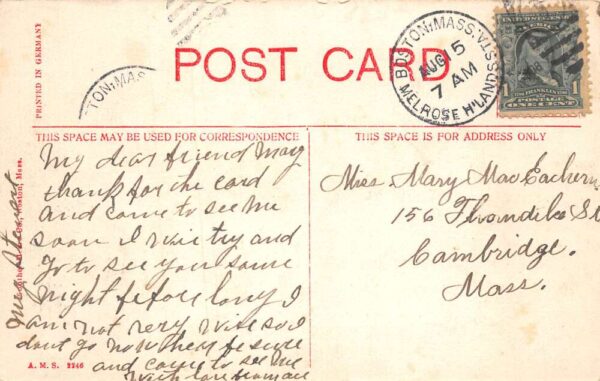 POST CARD
PRINTED IN GERMANY
BOSTON, MASS.
AUG 5
7 AM
MELROSE H'LANDS STA.
TON, MASS
1
POSTAGE
ONE CENT
THIS SPACE MAY BE USED FOR CORRESPONDENCE
THIS SPACE IS FOR ADDRESS ONLY
My dear friend Mary
thank for the card
and come to see me
soon I will try and
go to see you some
night before long I
am not very well so I
dont go now here be sure
and come to see me
with love from
Miss Mary MacEachern
156 Thondike St
Cambridge.
Mass.
Boston, Mass.
A. M. S. 2246